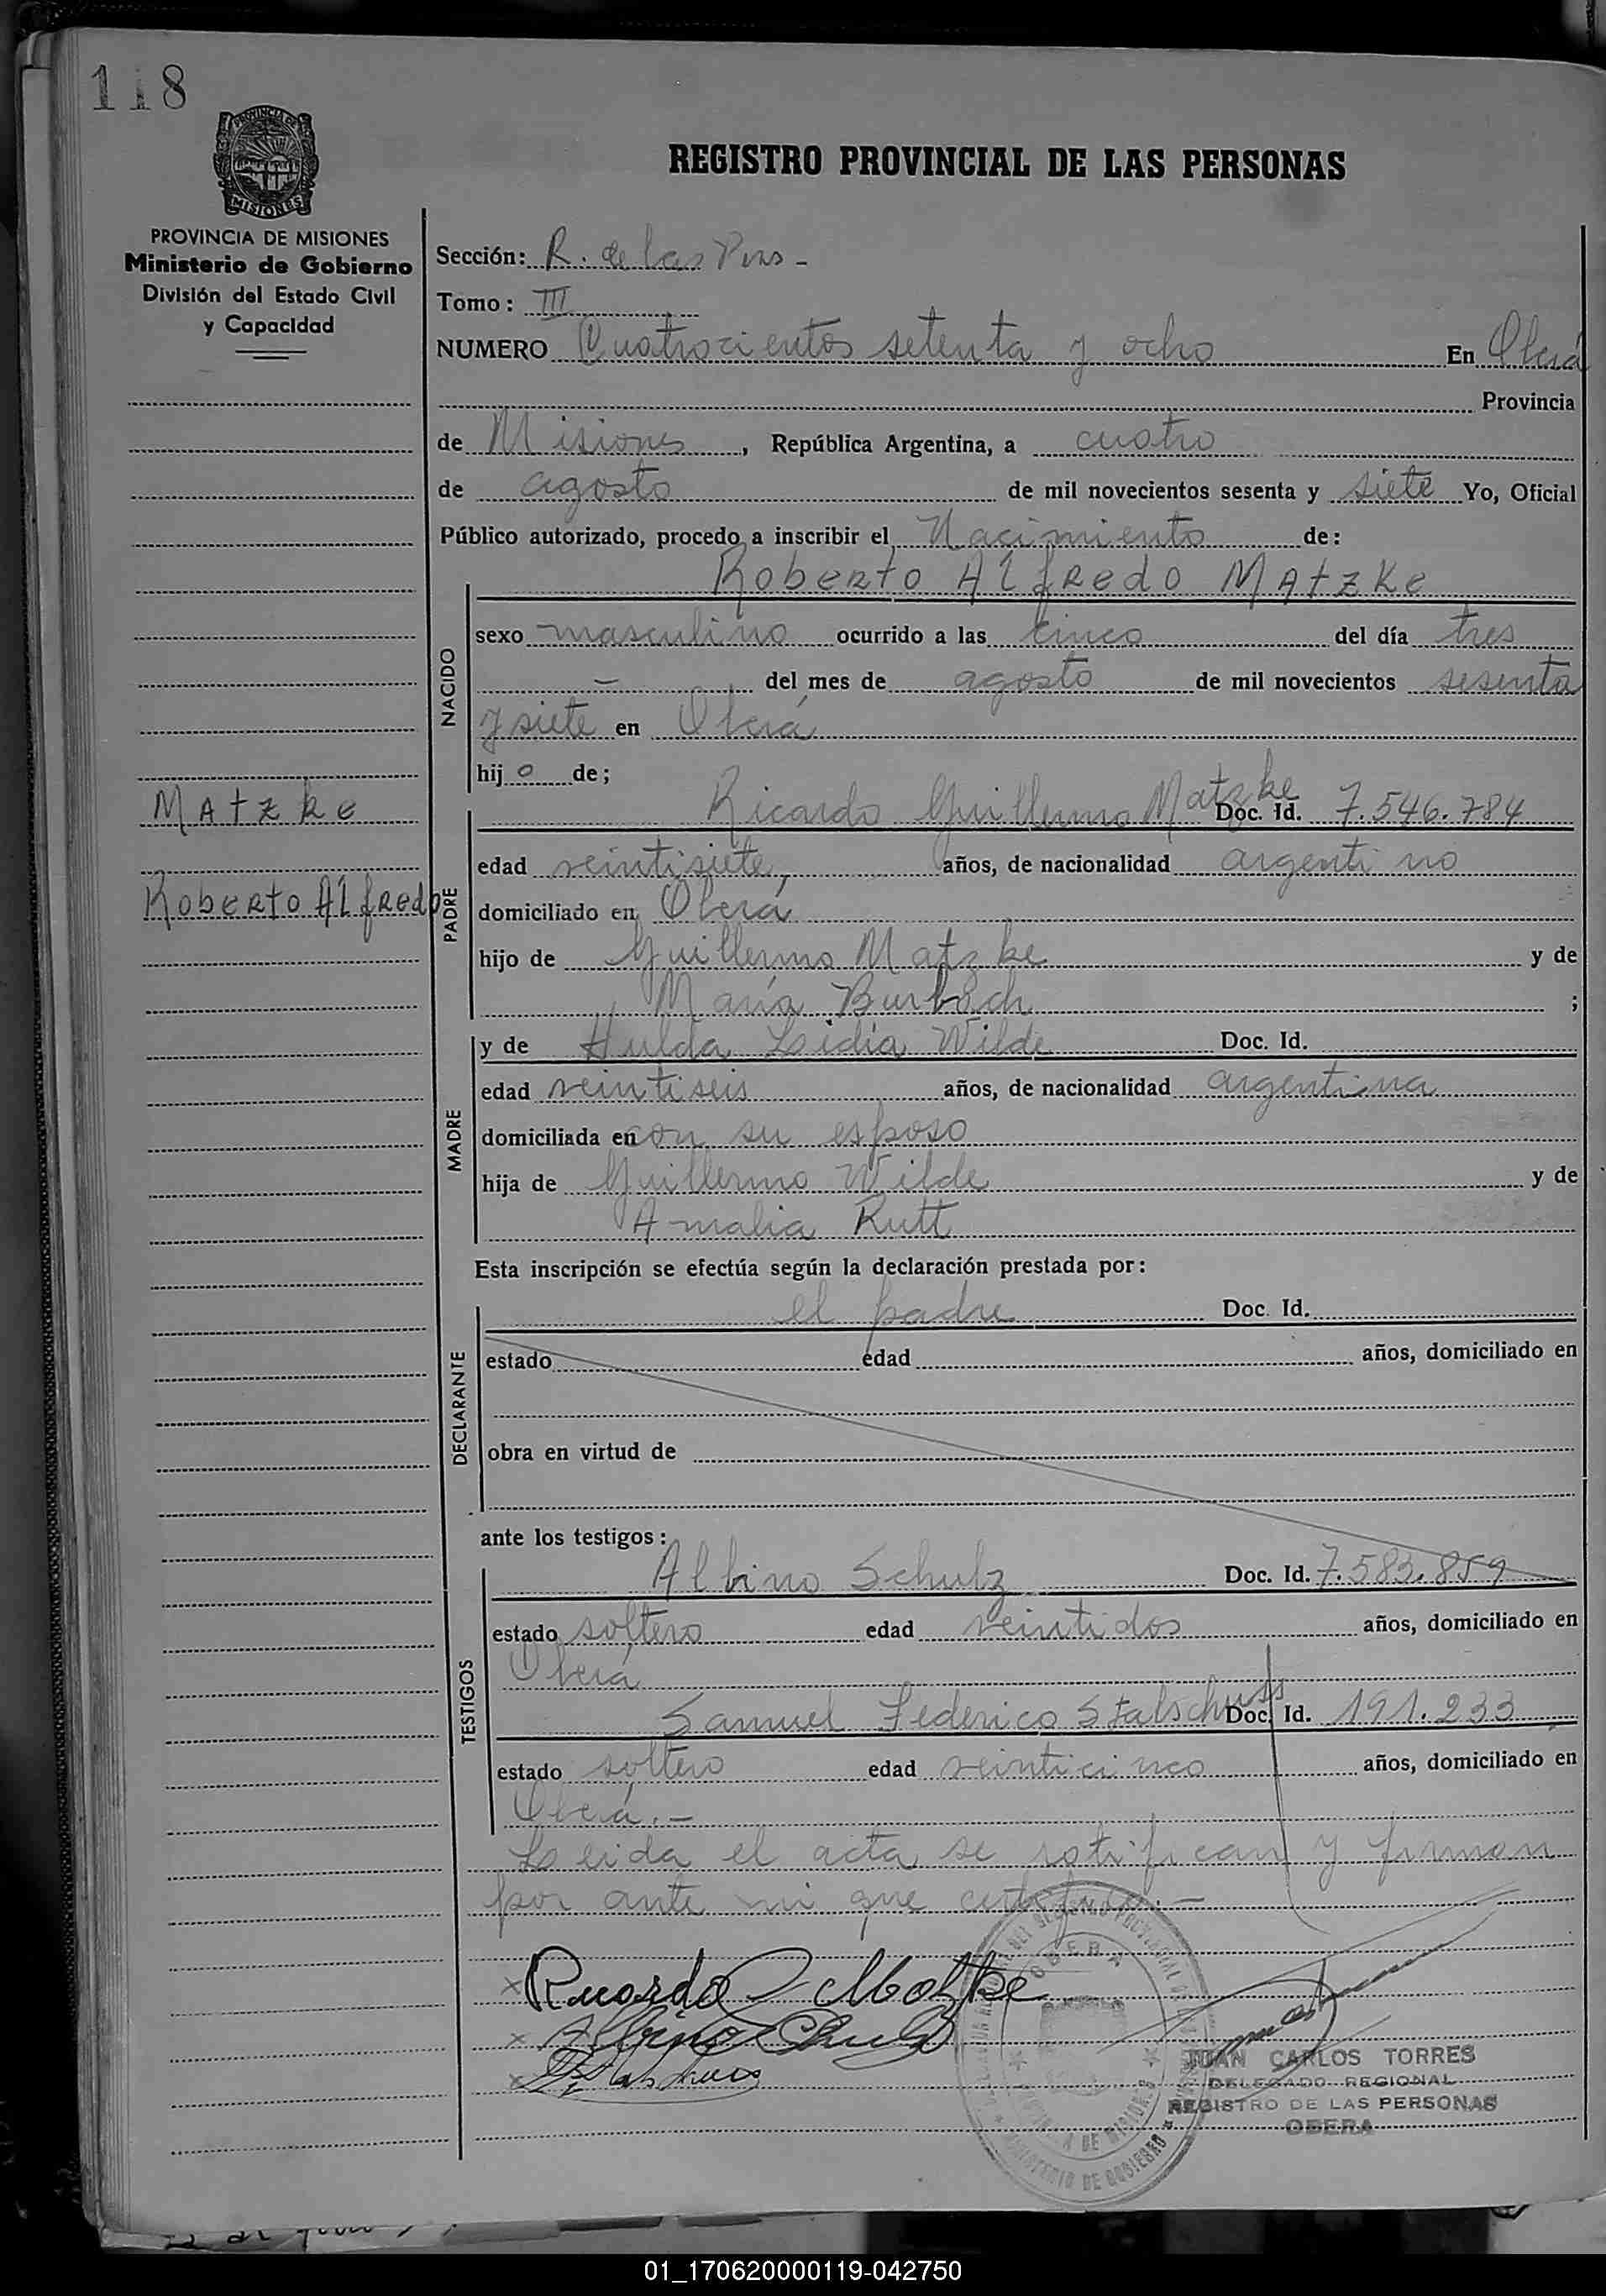 118
PROVINCIA DE MISIONES
MISIONES
PROVINCIA DE MISIONES
Ministerio de Gobierno
División del Estado Civil
y Capacidad
REGISTRO PROVINCIAL DE LAS PERSONAS
Sección: R. de las Pers -
Tomo: III
NUMERO Cuatrocientos setenta y ocho En Oberá
Provincia
de Misiones, República Argentina, a cuatro
de agosto de mil novecientos sesenta y siete Yo, Oficial
Público autorizado, procedo a inscribir el Nacimiento de:
Roberto Alfredo Matzke
NACIDO
sexo masculino ocurrido a las cinco del día tres
- del mes de agosto de mil novecientos sesenta
y siete en Oberá
hijo de;
Matzke
Roberto Alfredo
PADRE
Ricardo Guillermo Matzke Doc. Id. 7.546.784
edad veintisiete, años, de nacionalidad argentino
domiciliado en Oberá
hijo de Guillermo Matzke y de
María Burbach ;
MADRE
y de Hulda Lidia Wilde Doc. Id.
edad veintiseis años, de nacionalidad argentina
domiciliada en con su esposo
hija de Guillermo Wilde y de
Amalia Rutt
Esta inscripción se efectúa según la declaración prestada por:
DECLARANTE
el padre Doc. Id.
estado edad años, domiciliado en
obra en virtud de
ante los testigos:
TESTIGOS
Albino Schulz Doc. Id. 7.583.859
estado soltero edad veintidos años, domiciliado en
Oberá
Samuel Federico Stalschuss Doc. Id. 191.233
estado soltero edad veinticinco años, domiciliado en
Oberá.-
Leida el acta se ratifican y firman
por ante mi que certifico.-
x Ricardo G Matzke
x Albino Schulz
x
OBERA
MINISTERIO DE GOBIERNO
JUAN CARLOS TORRES
DELEGADO REGIONAL
REGISTRO DE LAS PERSONAS
OBERA
01_170620000119-042750